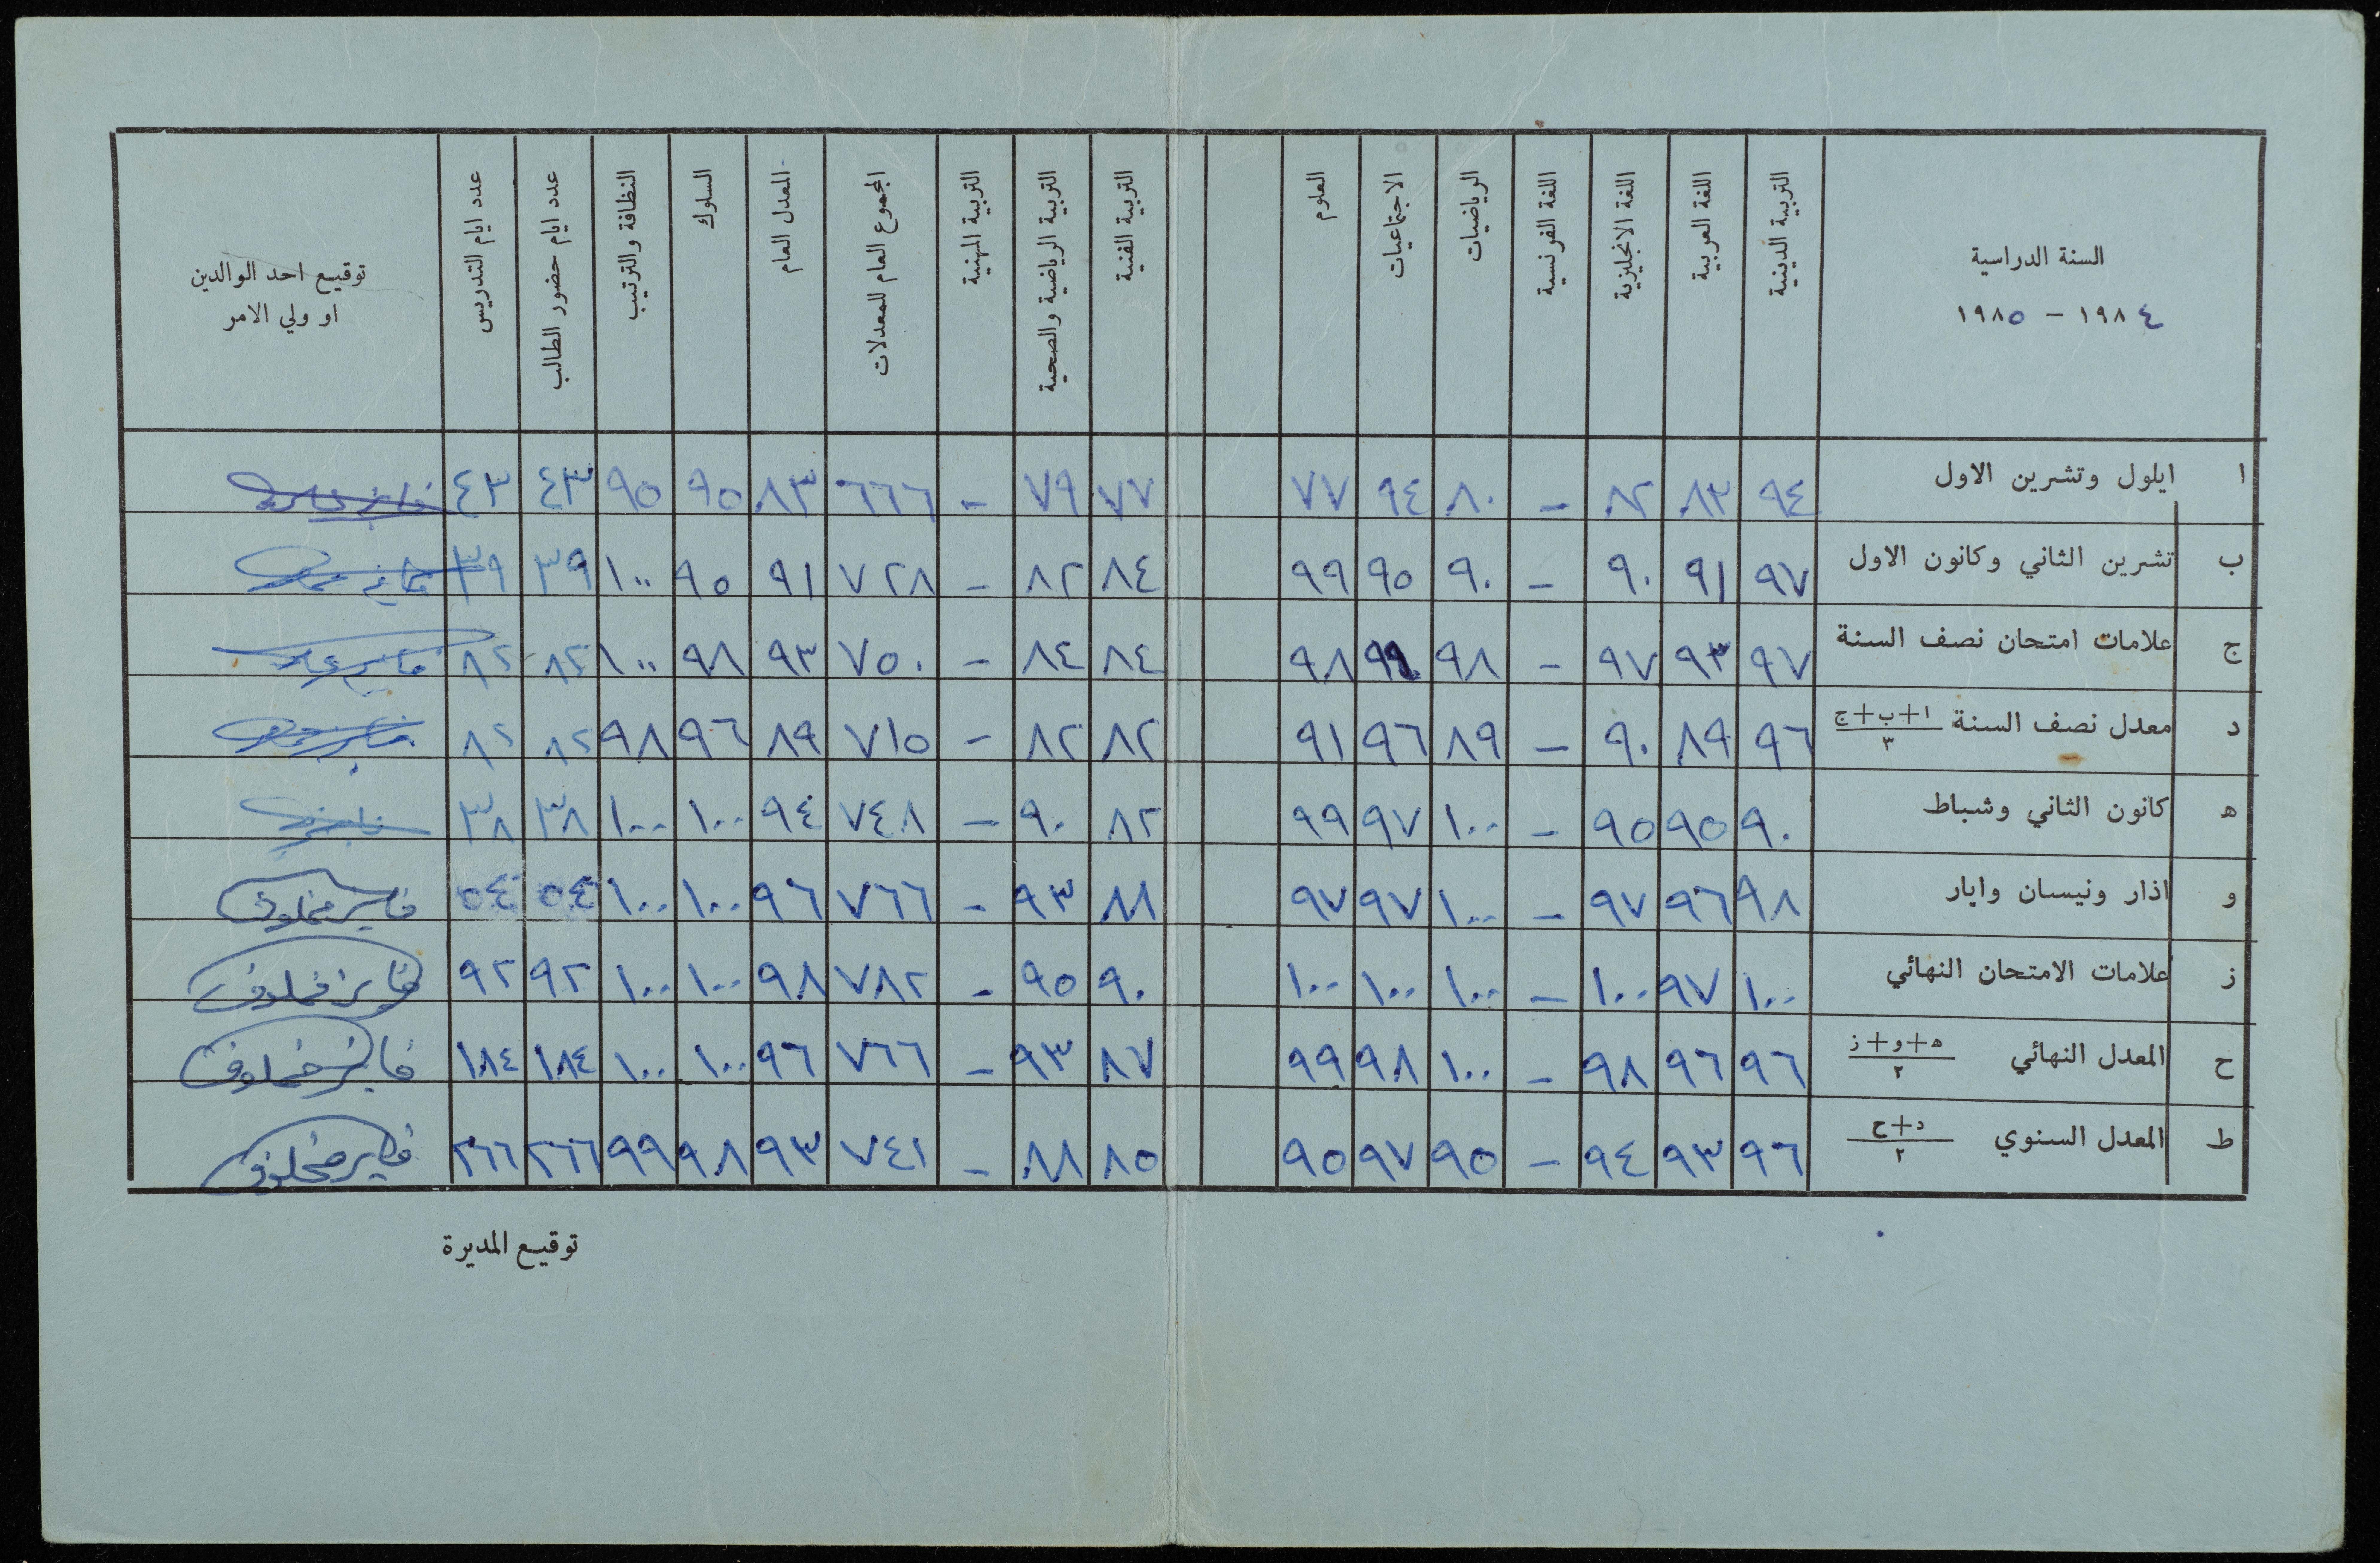 السنة الدراسية
١٩٨٤ - ١٩٨٥
التربية الدينية
اللغة العربية
اللغة الانجليزية
اللغة الفرنسية
الرياضيات
الاجتماعيات
العلوم
التربية الفنية
التربية الرياضية والصحية
التربية المهنية
المجموع العام للمعدلات
المعدل العام
السلوك
النظافة والترتيب
عدد ايام حضور الطالب
عدد ايام التدريس
توقيع احد الوالدين
او ولي الامر
ا ايلول وتشرين الاول ٩٤ ٨٣ ٨٢ - ٨٠ ٩٤ ٧٧ ٧٧ ٧٩ - ٦٦٦ ٨٣ ٩٥ ٩٥ ٤٣ ٤٣
ب تشرين الثاني وكانون الاول ٩٧ ٩١ ٩٠ - ٩٠ ٩٥ ٩٩ ٨٤ ٨٢ - ٧٢٨ ٩١ ٩٥ ١٠٠ ٣٩ ٣٩
ج علامات امتحان نصف السنة ٩٧ ٩٣ ٩٧ - ٩٨ ٩٨ ٨٤ ٨٤ - ٧٥٠ ٩٣ ٩٨ ١٠٠ ٨٢ ٨٢
د معدل نصف السنة ا+ب+ج ٣ ٩٦ ٨٩ ٩٠ - ٨٩ ٩٦ ٩١ ٨٢ ٨٢ - ٧١٥ ٨٩ ٩٦ ٩٨ ٨٢ ٨٢
ه كانون الثاني وشباط ٩٠ ٩٥ ٩٥ - ١٠٠ ٩٧ ٩٩ ٨٢ ٩٠ - ٧٤٨ ٩٤ ١٠٠ ١٠٠ ٣٨ ٣٨
و اذار ونيسان وايار ٩٨ ٩٦ ٩٧ - ١٠٠ ٩٧ ٩٧ ٨٨ ٩٣ - ٧٦٦ ٩٦ ١٠٠ ١٠٠ ٥٤ ٥٤ فايز مخلوف
ز علامات الامتحان النهائي ١٠٠ ٩٧ ١٠٠ - ١٠٠ ١٠٠ ١٠٠ ٩٠ ٩٥ - ٧٨٢ ٩٨ ١٠٠ ١٠٠ ٩٢ ٩٢ فايز مخلوف
ح المعدل النهائي ه+و+ز ٢ ٩٦ ٩٦ ٩٨ - ١٠٠ ٩٨ ٩٩ ٨٧ ٩٣ - ٧٦٦ ٩٦ ١٠٠ ١٠٠ ١٨٤ ١٨٤ فايز مخلوف
ط المعدل السنوي د+ح ٢ ٩٦ ٩٣ ٩٤ - ٩٥ ٩٧ ٩٥ ٨٥ ٨٨ - ٧٤١ ٩٣ ٩٨ ٩٩ ٢٦٦ ٢٦٦ فايز مخلوف
توقيع المديرة